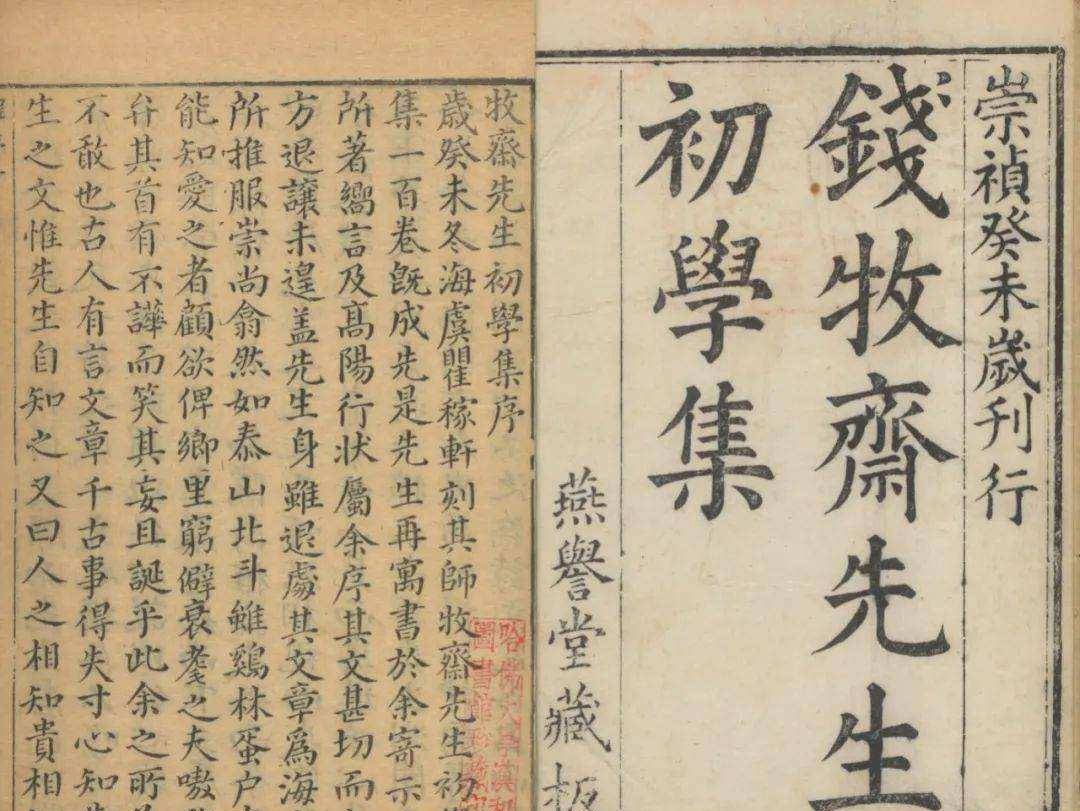 崇禎癸未歲刊行
錢牧齋先生
初學集
燕譽堂藏板
牧齋先生初學集序
歲癸未冬海虞瞿稼軒刻其師牧齋先生初
集一百卷旣成先是先生再寓書於余寄示
所著嚮言及髙陽行狀屬余序其文甚切而
方退讓未遑盖先生身雖退處其文章爲海
所推服崇尚翕然如泰山北斗雖鷄林蛋户
能知愛之者顧欲俾鄉里窮僻衰耄之夫嗷
弁其首有不譁而笑其妄且誕乎此余之所
不敢也古人有言文章千古事得失寸心知
生之文惟先生自知之又曰人之相知貴相
哈佛大學漢和
圖書館珍藏